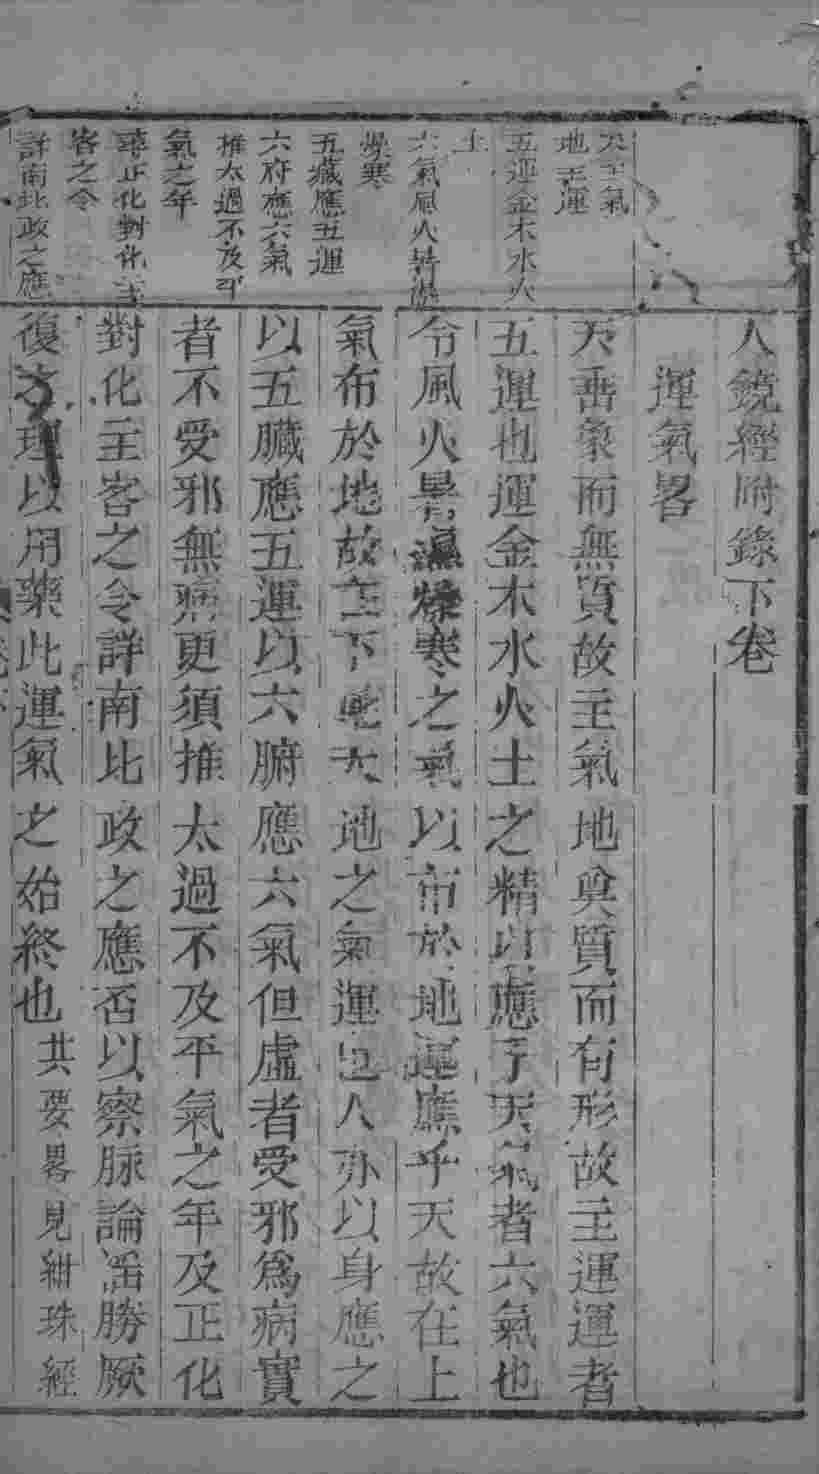 天主氣
地主運
五運金木水火
土
六氣風火暑濕
燥寒
五藏應五運
六府應六氣
推太過不及平
氣之年
尋正化對化主
客之令
詳南北政之應
人鏡經附錄下卷
運氣畧
天垂象而無質故主氣地奠質而有形故主運運者
五運也運金木水火土之精以應乎天氣者六氣也
令風火暑濕燥寒之氣以布於地運應乎天故在上
氣布於地故在下此天地之氣運也人亦以身應之
以五臟應五運以六腑應六氣但虛者受邪為病實
者不受邪無病更須推太過不及平氣之年及正化
對化主客之令詳南北政之應否以察脉論淫勝厥
復之理以用藥此運氣之始終也共要畧見紺珠經